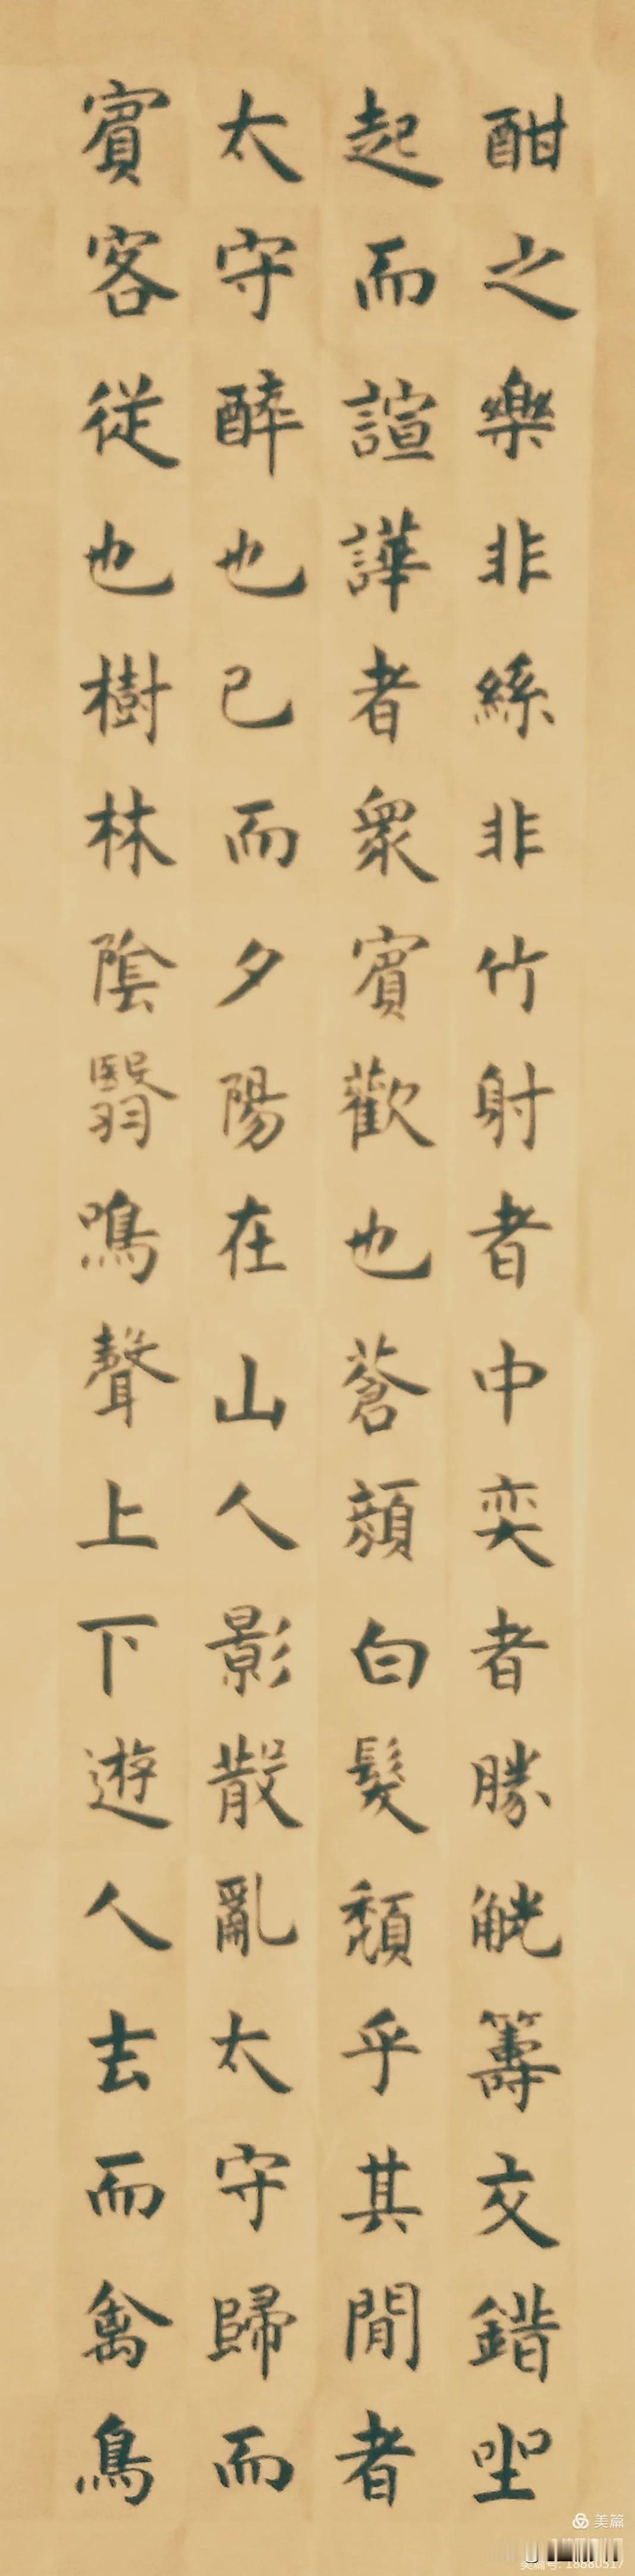 酣之樂非絲非竹射者中奕者勝觥籌交錯坐
起而諠譁者衆賓歡也蒼顏白髮頹乎其間者
太守醉也已而夕陽在山人影散亂太守歸而
賓客從也樹林陰翳鳴聲上下遊人去而禽鳥
美篇
美篇号: 18680517